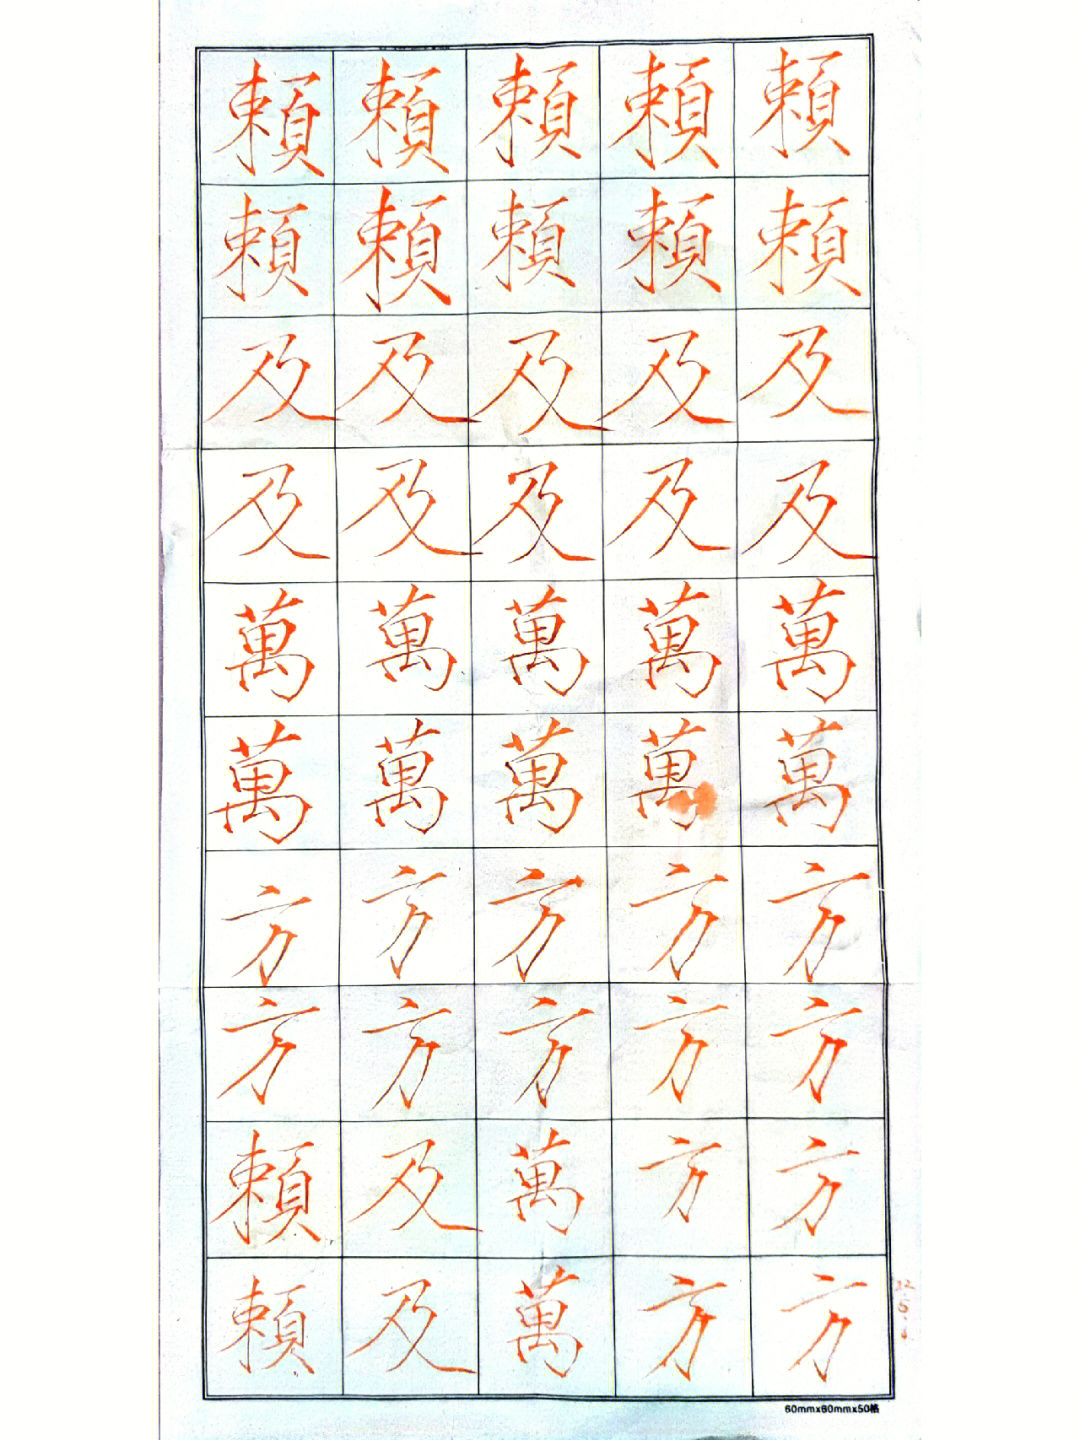 賴賴賴賴賴
賴賴賴賴賴
及及及及及
及及及及及
萬萬萬萬萬
萬萬萬萬萬
方方方方方
方方方方方
賴及萬方方
賴及萬方方
60mmx60mmx50格